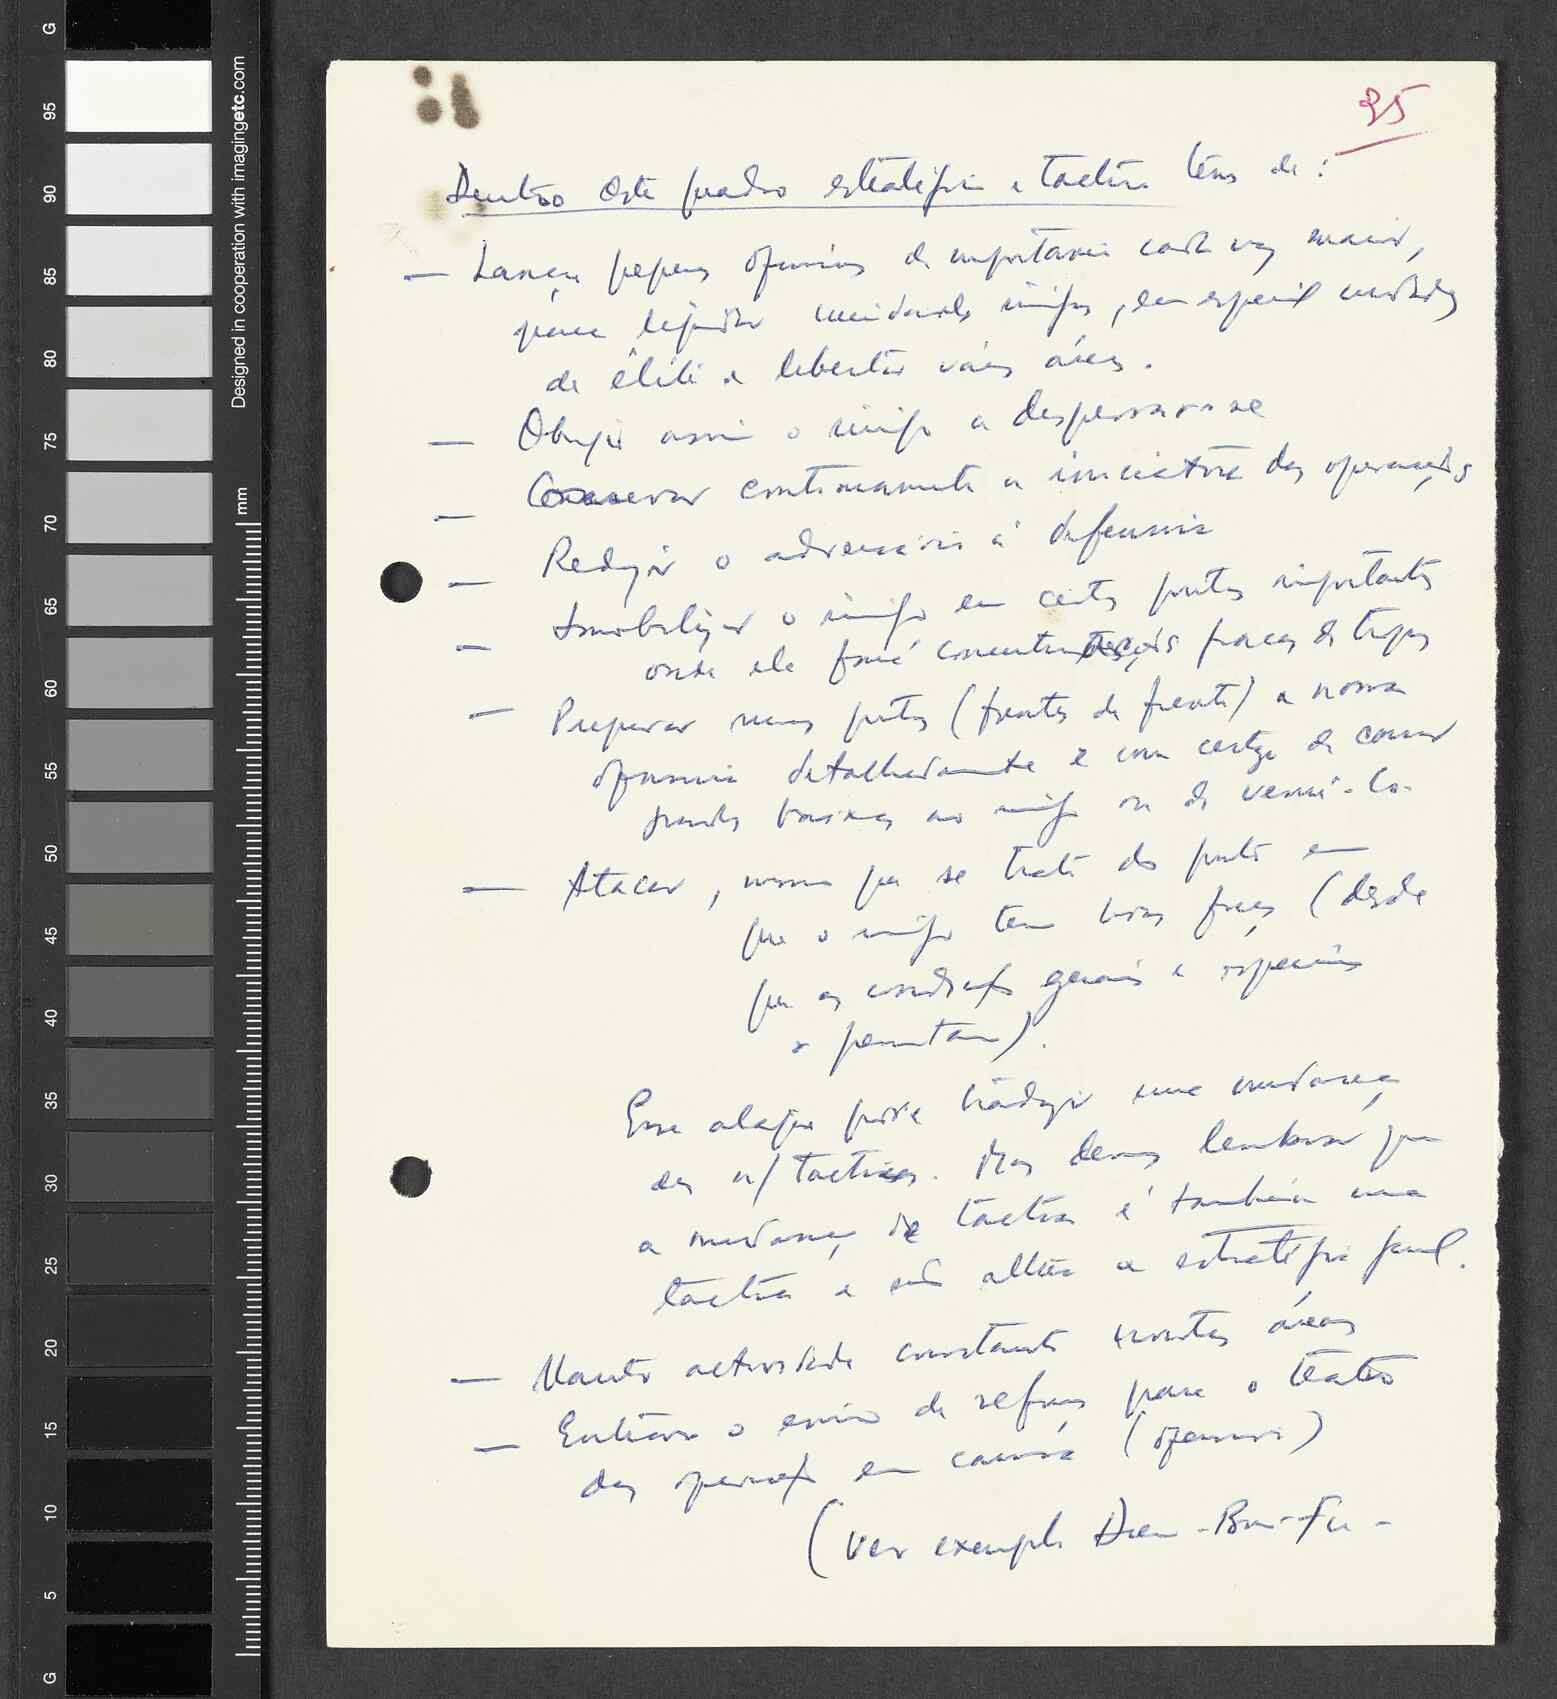 G
95
90
85
80
75
70
65
60
55
50
45
40
35
30
25
20
15
10
5
G
Designed in cooperation with imagingetc.com
mm
Dentro este quadro estratégico e tactico temos de:
— Lançar pequenas ofensivas de importancia cada vez maior,
para liquidar unidades inimigas, em especial unidades
de élite e libertar várias áreas.
— Obrigar assim o inimigo a dispersar-se
— Conservar continuamente a iniciativa das operações
— Reduzir o adversário à defensiva
— Imobilizar o inimigo em certos pontos importantes
onde ele fará concentrações fracas de tropas
— Preparar nesses pontos (frentes da frente) a nossa
ofensiva detalhadamente e com certeza de causar
grandes baixas ao inimigo ou de vencê-lo.
— Atacar, mesmo que se trate do ponto em
que o inimigo tem boas forças (desde
que as condições gerais e especiais
o permitam).
Esse ataque pode traduzir uma mudança
da n/ tactica. Mas devemos lembrar que
a mudança de tactica é também uma
tactica e não altera a estratégia geral.
— Manter actividade constante noutras áreas
— Entravar o envio de reforços para o teatro
das operações em causa (ofensiva)
(Ver exemplo Dien-Bin-Fu-